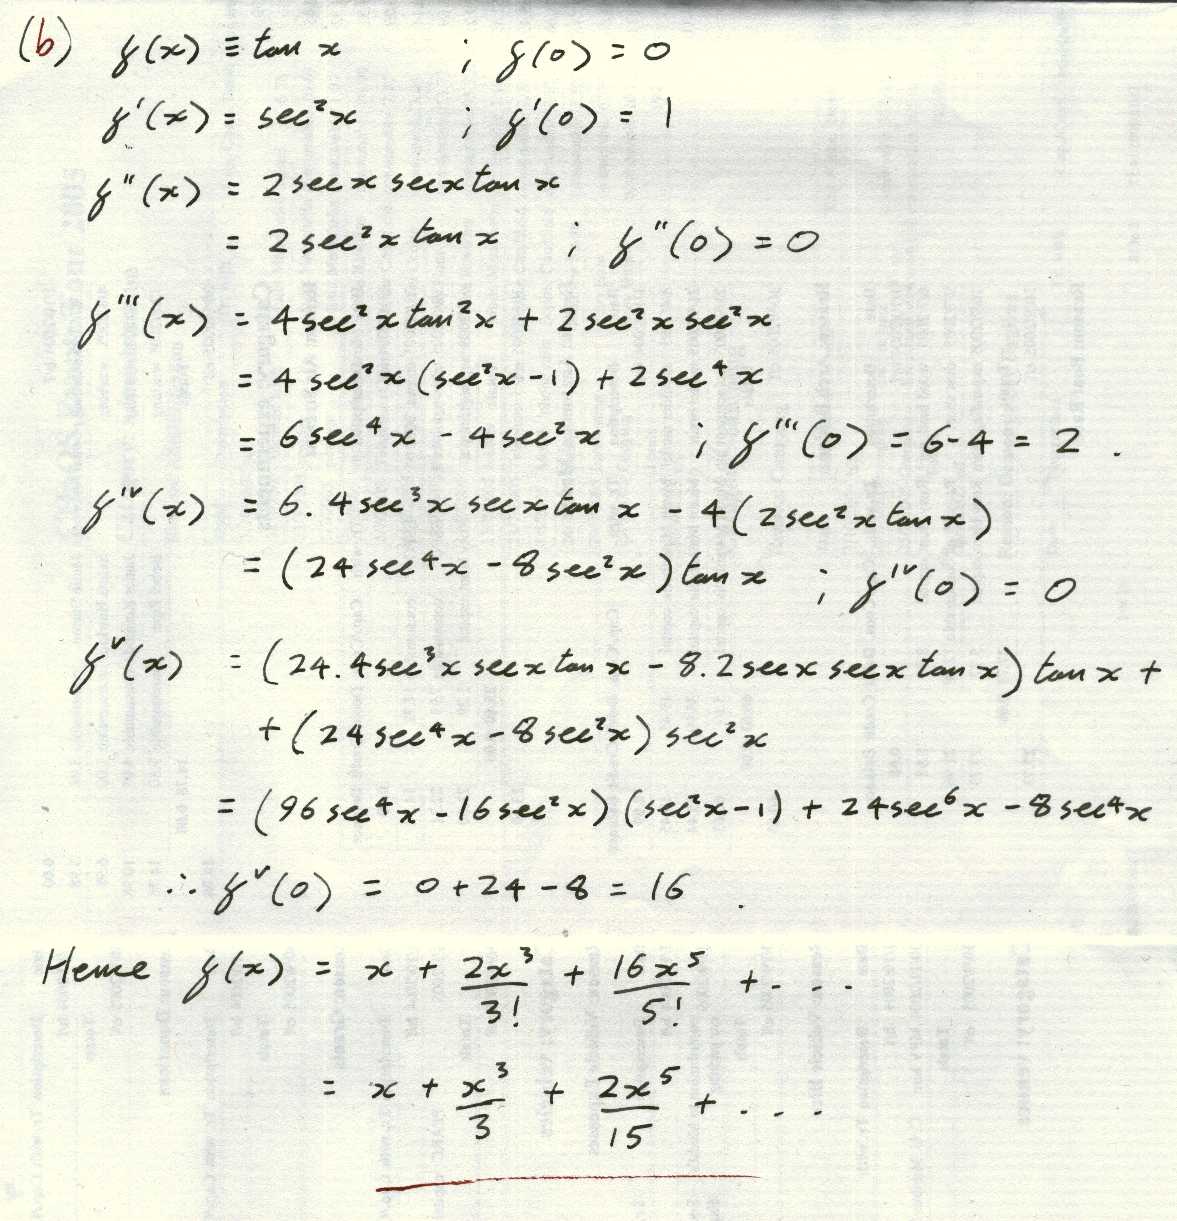 (b) f(x) ≡ tan x ; f(0) = 0
f'(x) = sec²x ; f'(0) = 1
f''(x) = 2 sec x sec x tan x
= 2 sec²x tan x ; f''(0) = 0
f'''(x) = 4 sec²x tan²x + 2 sec²x sec²x
= 4 sec²x (sec²x - 1) + 2 sec⁴x
= 6 sec⁴x - 4 sec²x ; f'''(0) = 6-4 = 2 .
fⁱᵛ(x) = 6.4 sec³x sec x tan x - 4(2 sec²x tan x)
= (24 sec⁴x - 8 sec²x) tan x ; fⁱᵛ(0) = 0
fᵛ(x) = (24.4 sec³x sec x tan x - 8.2 sec x sec x tan x) tan x +
+ (24 sec⁴x - 8 sec²x) sec²x
= (96 sec⁴x - 16 sec²x)(sec²x - 1) + 24 sec⁶x - 8 sec⁴x
∴ fᵛ(0) = 0 + 24 - 8 = 16 .
Hence f(x) = x + 2x³/3! + 16x⁵/5! + . . .
= x + x³/3 + 2x⁵/15 + . . .